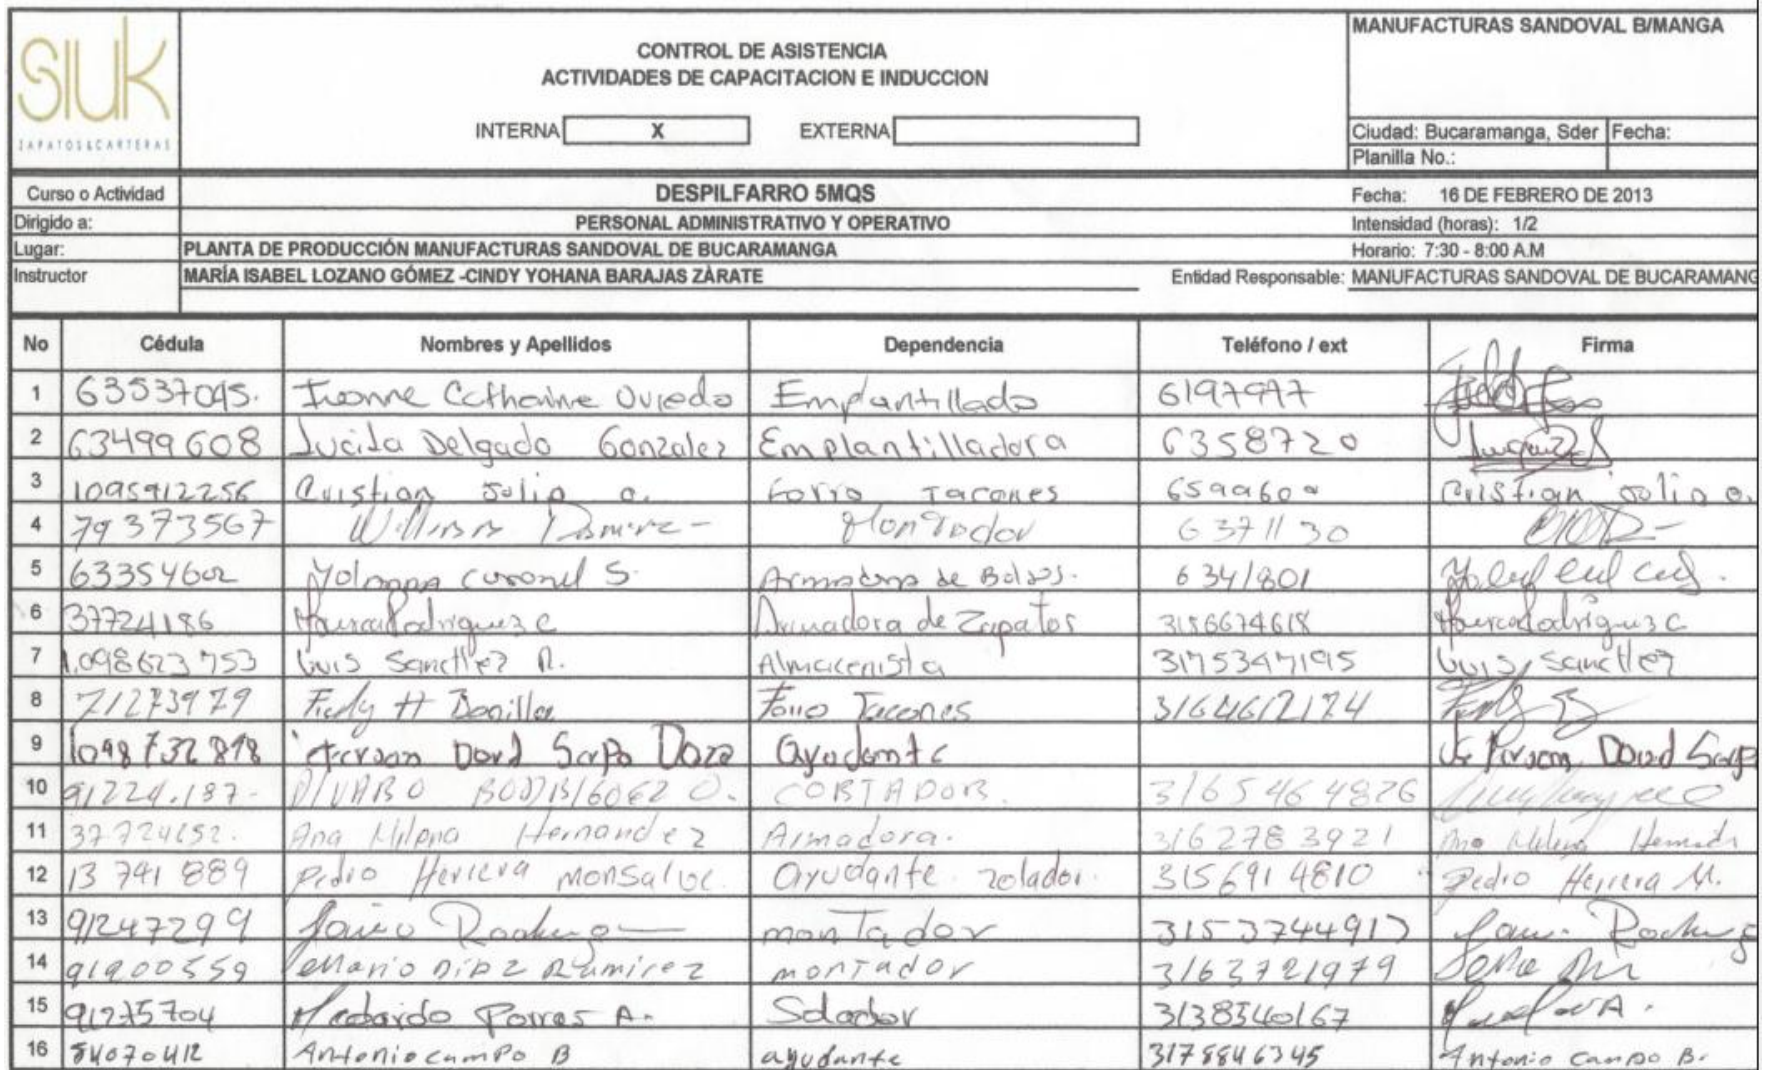 SIUK
ZAPATOS&CARTERAS
CONTROL DE ASISTENCIA
ACTIVIDADES DE CAPACITACION E INDUCCION
INTERNA X EXTERNA
MANUFACTURAS SANDOVAL B/MANGA
Ciudad: Bucaramanga, Sder Fecha:
Planilla No.:
Curso o Actividad DESPILFARRO 5MQS Fecha: 16 DE FEBRERO DE 2013
Dirigido a: PERSONAL ADMINISTRATIVO Y OPERATIVO Intensidad (horas): 1/2
Lugar: PLANTA DE PRODUCCIÓN MANUFACTURAS SANDOVAL DE BUCARAMANGA Horario: 7:30 - 8:00 A.M
Instructor MARÍA ISABEL LOZANO GÓMEZ -CINDY YOHANA BARAJAS ZÀRATE Entidad Responsable: MANUFACTURAS SANDOVAL DE BUCARAMANG
No Cédula Nombres y Apellidos Dependencia Teléfono / ext Firma
1 63537095. Ivonne Catherine Oviedo Emplantillado 6197977
2 63499608 Lucila Delgado Gonzalez Emplantilladora 6358720
3 1095912256 Cristian Solio a. Forro Tacones Cristian Solio a.
4 79373567 Montador 6371130
5 63354602 Coronel S. Armadora de Bolsos. 6341801
6 37724186 Rodriguez C Armadora de Zapatos 3156674618 Rodriguez C
7 1.098623753 Luis Sanchez R. Almacenista 3175347195 Luis Sanchez
8 71273979 Fredy H Bonilla Forro Tacones 3164612174
9 1098732898 David Ayudante David
10 91224.187- ALVARO CORTADOR. 3165464826
11 Ana Milena Hernandez Armadora. 3162783921 Ana Milena Hernandez
12 13741889 Pedro Herrera Monsalve Ayudante zolador. 3156914810 Pedro Herrera M.
13 91247299 montador
14 91200559 Ramirez montador 3163721979
15 91275704 Medardo Porras A. Solador 3138540167
16 Antonio campo B ayudante 3178846345 Antonio Campo B.